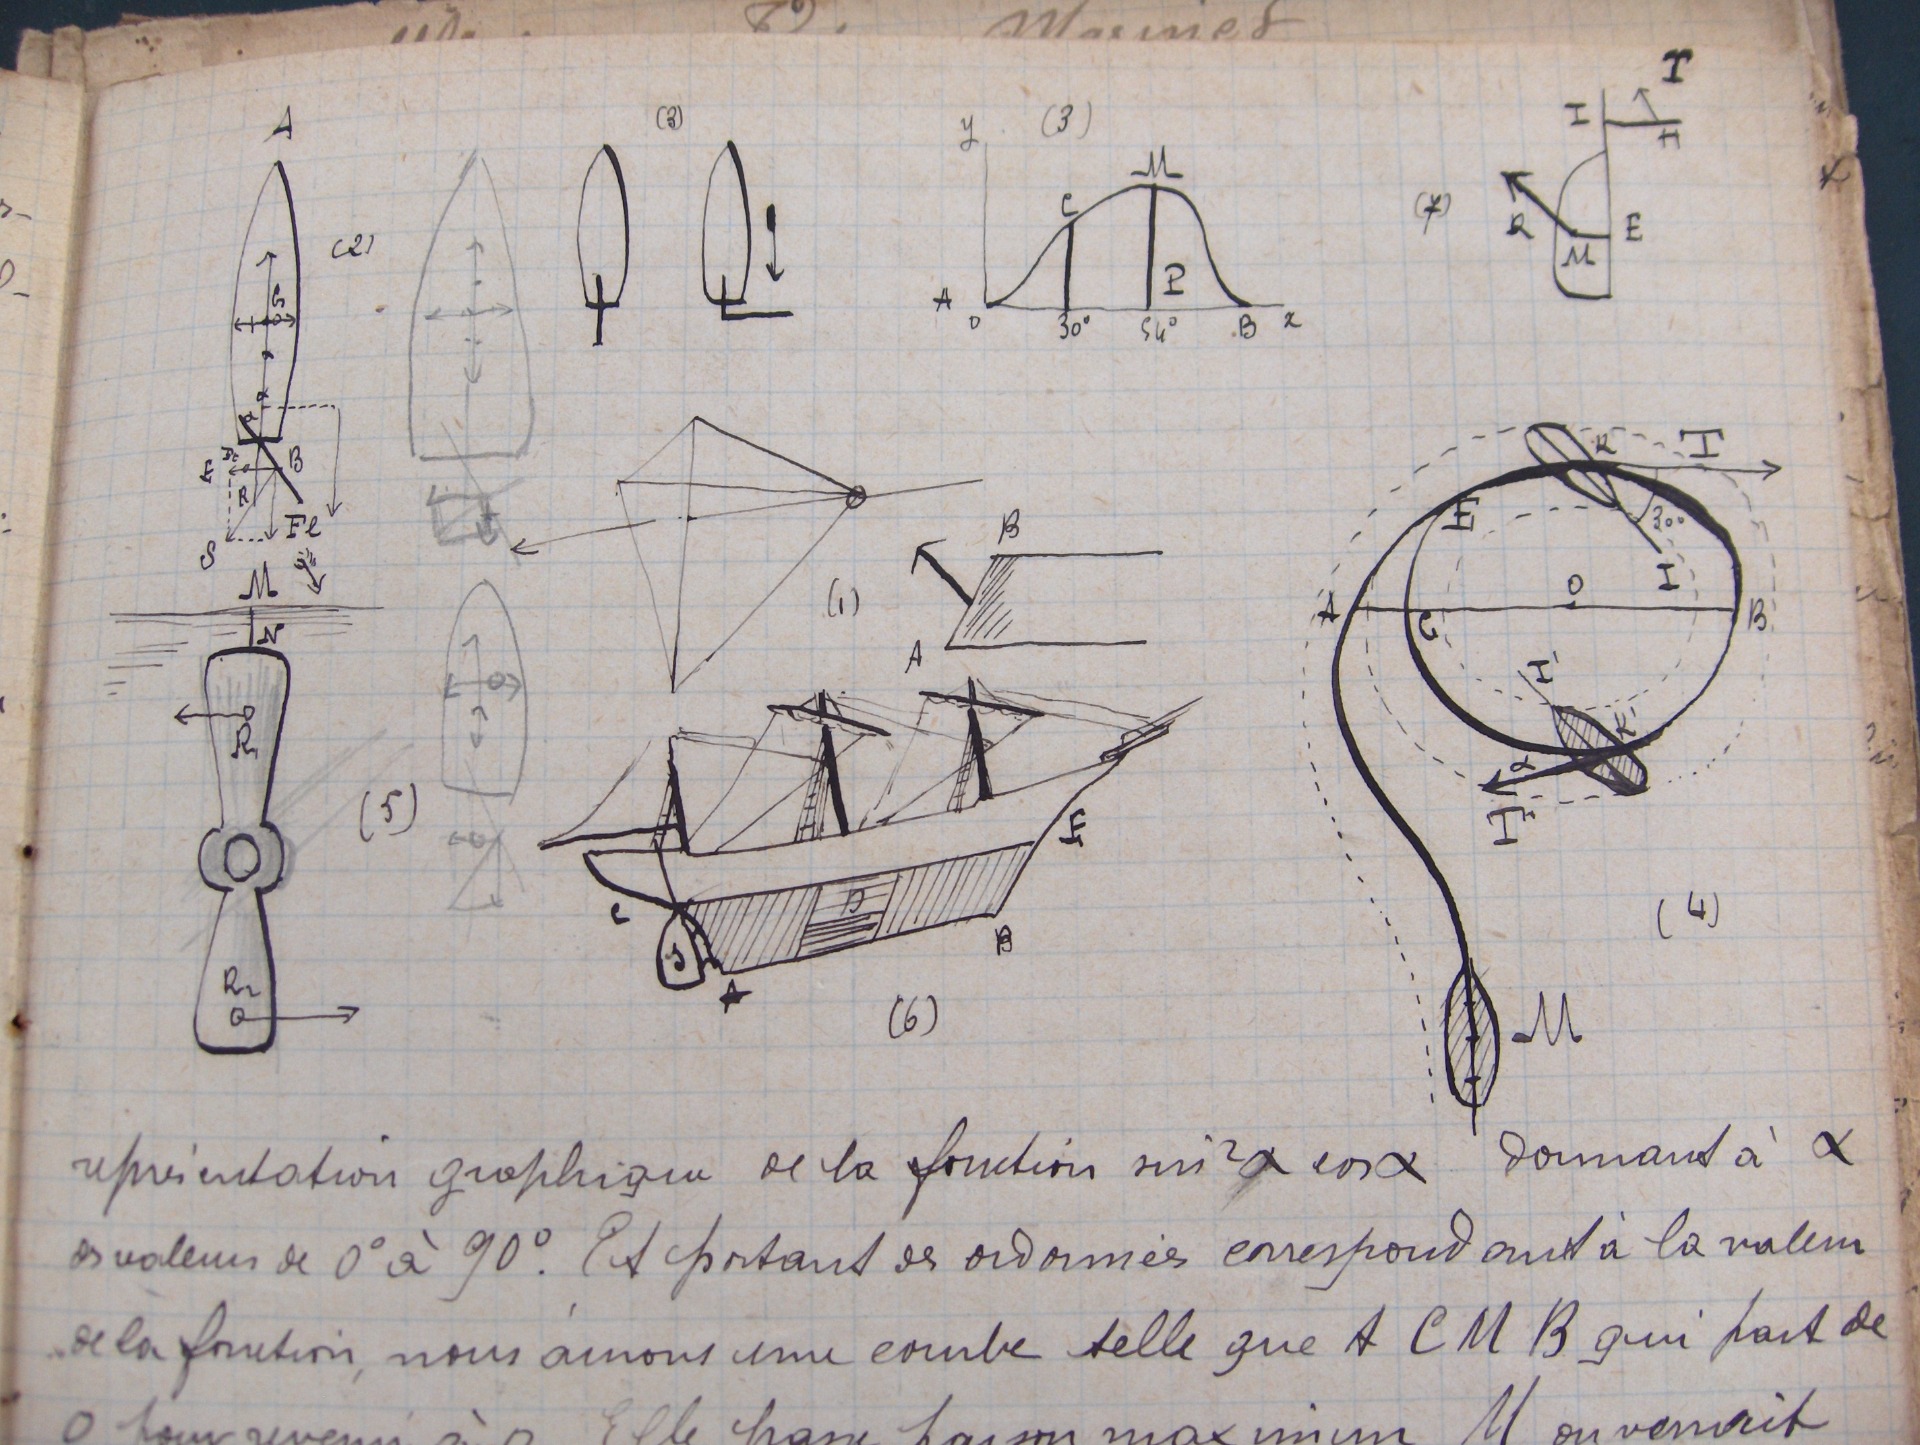 A
(2)
(3)
y (3)
M
C
P
A
0 30° 54° B x
I
I
H
(7)
R
M
E
G
α
B
E
R
S
Fl
M
N
R1
(5)
R2
(1)
B
A
D
C
S
A
B
E
(6)
K
I
E
30°
I
A
C
O
B
I'
K'
α
I'
(4)
M
représentation graphique de la fonction sin²α cosα donnant à α
des valeurs de 0° à 90°. Et portant des ordonnées correspondant à la valeur
de la fonction, nous aurons une courbe telle que A C M B qui part de
0 pour revenir à 0. Elle passe par son maximum M on verrait